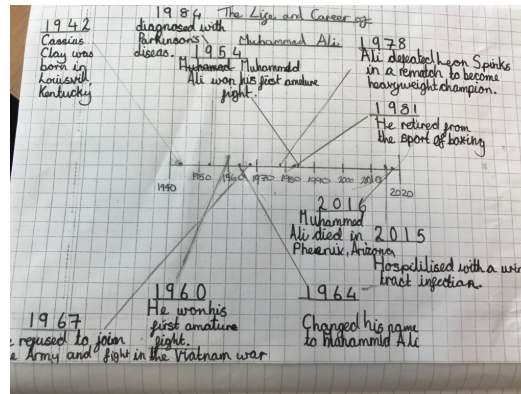 The Life and Career of
Muhammad Ali
1942
Cassius
Clay was
born in
Louisvill
Kentucky
1984
diagnosed with
Parkinson's
diseas.
1954
Muhamad Muhammad
Ali won his first amature
fight.
1978
Ali defeated Leon Spinks
in a rematch to become
heavyweight champion.
1981
He retired from
the sport of boxing
1940
1950
1960
1970
1980
1990
2000
2010
2020
2016
Muhammad
Ali died in
Pheonix, Arizona
2015
Hospitilised with a urin
tract infection.
1967
refused to join
Army and fight in the Viatnam war
1960
He won his
first amature
fight.
1964
Changed his name
to Mahammid Ali